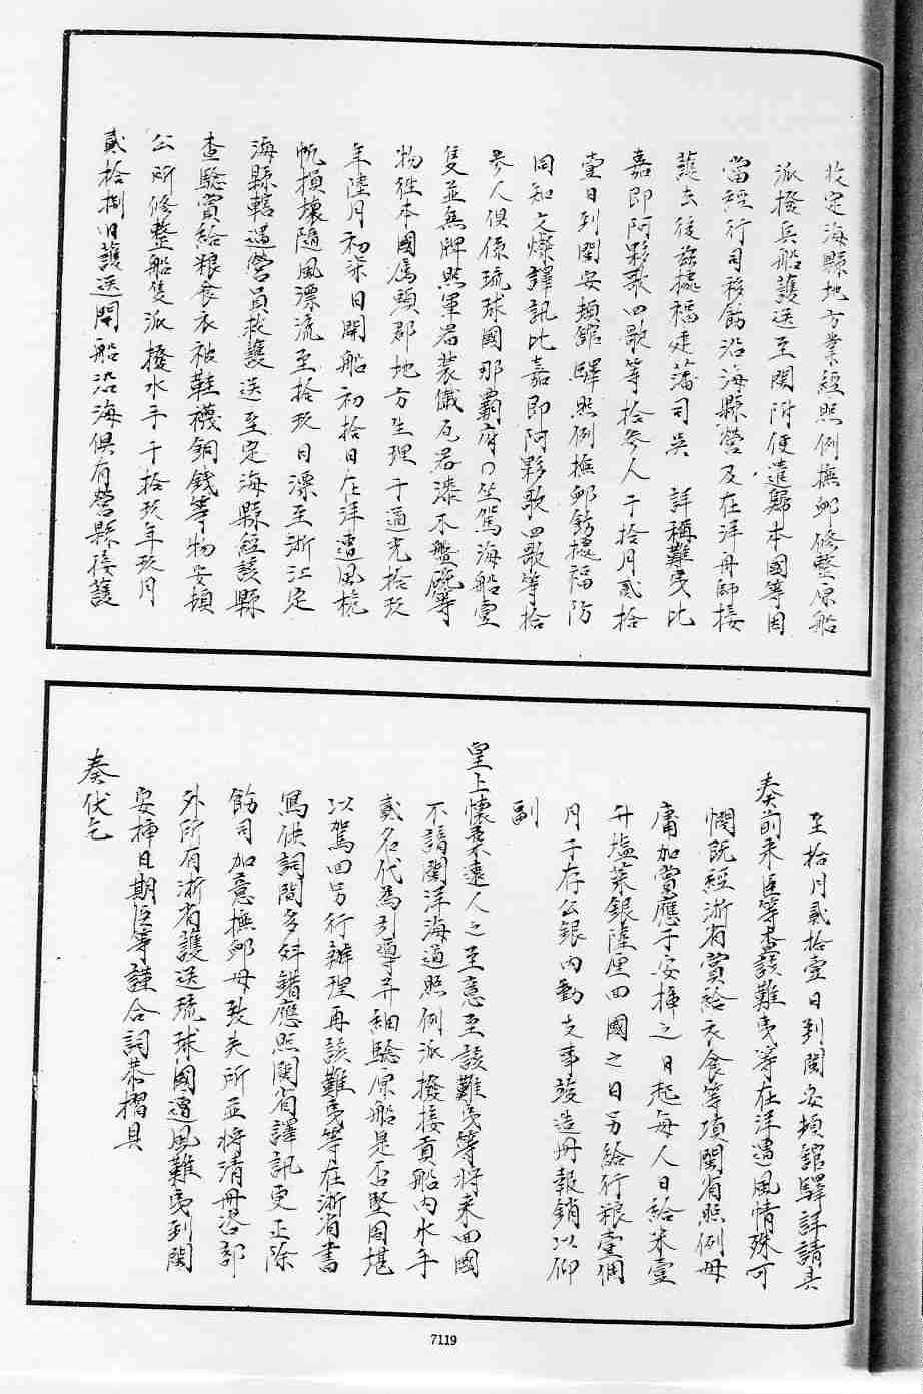 於定海縣地方業經照例撫卹修整原船
派撥兵船護送至閩附便遣歸本國等因
當經行司移飭沿海縣營及在洋舟師接
護去後茲據福建藩司吳 詳稱難夷比
嘉即阿夥歌四歌等拾參人于拾月貳拾
壹日到閩安頓館驛照例撫卹飭據福防
同知文爍譯訊比嘉即阿夥歌四歌等拾
參人俱係琉球國那霸府口坐駕海船壹
隻並無牌照軍器裝儎瓦器漆木盤碗等
物往本國属頭郡地方生理于道光拾玖
年陸月初柒日開船初拾日在洋遭風桅
帆損壞隨風漂流至拾玖日漂至浙江定
海縣轄遇營員救護送至定海縣經該縣
查驗賞給粮食衣被鞋襪銅錢等物安頓
公所修整船隻派撥水手于拾玖年玖月
貳拾捌日護送開船沿海俱有營縣接護
至拾月貳拾壹日到閩安頓館驛詳請具
奏前來臣等查該難夷等在洋遇風情殊可
憫既經浙省賞給衣食等項閩省照例毋
庸加賞應于安揷之日起每人日給米壹
升塩菜銀陸厘回國之日另給行粮壹個
月于存公銀內動支事竣造冊報銷以仰
副
皇上懷柔遠人之至意至該難夷等將來回國
不諳閩洋海道照例派撥接貢船內水手
貳名代為引導并細驗原船是否堅固堪
以駕回另行辦理再該難夷等在浙省書
寫供詞間多舛錯應照閩省譯訊更正除
飭司加意撫卹毋致失所並將清冊咨部
外所有浙省護送琉球國遭風難夷到閩
安揷日期臣等謹合詞恭摺具
奏伏乞
7119